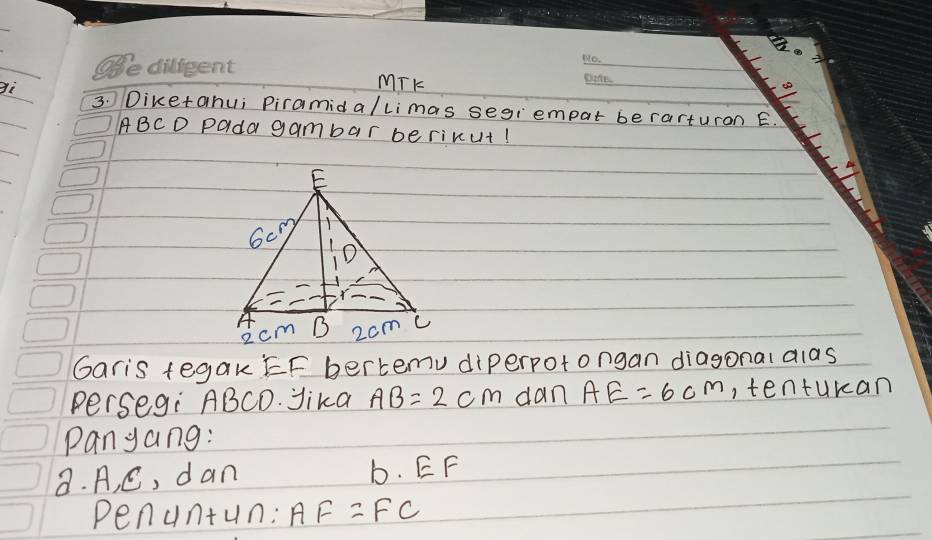 Be diligent
No.
Date.
MTK
3. Diketahui Piramida/Limas segi empat berarturan E.
ABCD pada gambar berikut!
E
6cm
D
A
B
C
2cm
2cm
Garis tegak EF bertemu diperpotongan diagonal alas
persegi ABCD. Jika AB = 2 cm dan AE = 6 cm, tentukan
panyang:
a. A,C, dan
b. EF
Penuntun: AF = FC